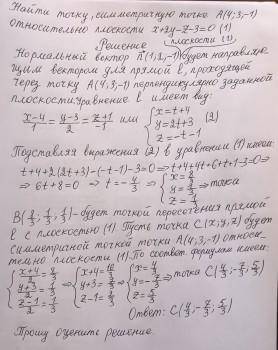 Найти точку, симметричную точке А(4;3;-1)
относительно плоскости x+2y-z-3=0 (1)
Решение
плоскости (1)
Нормальный вектор n̄(1,2,-1) будет направляю-
щим вектором для прямой ℓ, проходящей
через точку А(4,3,-1) перпендикулярно заданной
плоскости. Уравнение ℓ имеет вид:
x-4/1 = y-3/2 = z+1/-1 или { x=t+4 y=2t+3 z=-t-1 (2)
Подставляя выражения (2) в уравнении (1) имеем:
t+4+2(2t+3)-(-t-1)-3=0 ⇒ t+4+4t+6+t+1-3=0 ⇒
⇒ 6t+8=0 ⇒ t=-4/3 ⇒ { x=8/3 y=1/3 z=1/3 ⇒ точка
B(8/3; 1/3; 1/3) - будет точкой пересечения прямой
ℓ с плоскостью (1) Пусть точка C(x;y,z) будет
симметричной точкой точки А(4,3,-1) относи-
тельно плоскости (1) По соотв. формулам имеем:
{ x+4/2=8/3 y+3/2=1/3 z-1/2=1/3 ⇒ { x+4=16/3 y+3=2/3 z-1=2/3 ⇒ { x=4/3 y=-7/3 z=5/3 ⇒ точка C(4/3;-7/3;5/3)
Ответ: C(4/3;-7/3;5/3)
Прошу оцените решение.